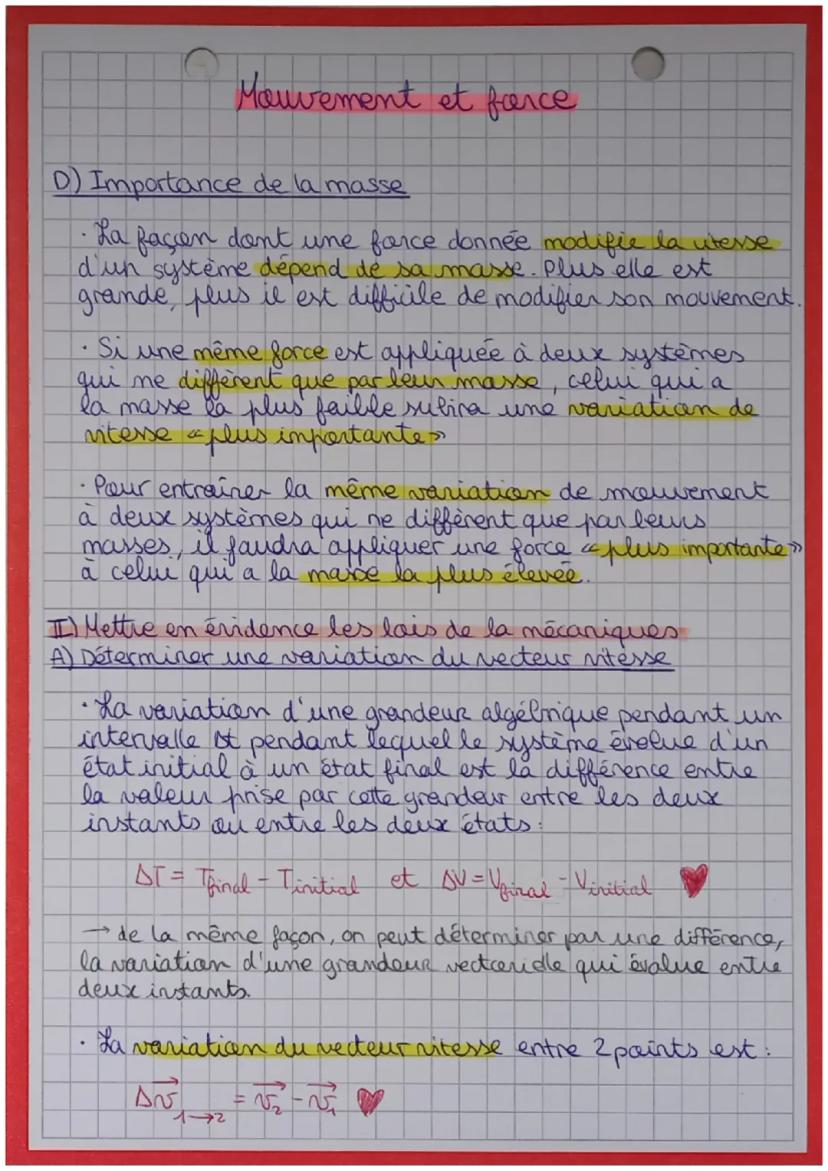 Mouvement et force
D) Importance de la masse
· La façon dont une force donnée modifie la vitesse
d'un système dépend de sa masse. Plus elle est
grande, plus il est difficile de modifier son mouvement.
· Si une même force est appliquée à deux systèmes
qui ne diffèrent que par leur masse, celui qui a
la masse la plus faible subira une variation de
vitesse « plus importante »
· Pour entraîner la même variation de mouvement
à deux systèmes qui ne diffèrent que par leurs
masses, il faudra appliquer une force « plus importante »
à celui qui a la masse la plus élevée.
II) Mettre en évidence les lois de la mécaniques
A) Déterminer une variation du vecteur vitesse
· La variation d'une grandeur algébrique pendant un
intervalle Δt pendant lequel le système évolue d'un
état initial à un état final est la différence entre
la valeur prise par cette grandeur entre les deux
instants ou entre les deux états :
ΔT = Tfinal - Tinitial et ΔV = Vfinal - Vinitial ♥
→ de la même façon, on peut déterminer par une différence,
la variation d'une grandeur vectorielle qui évalue entre
deux instants.
· La variation du vecteur vitesse entre 2 points est :
Δv⃗ 1→2 = v⃗₂ - v⃗₁ ♥